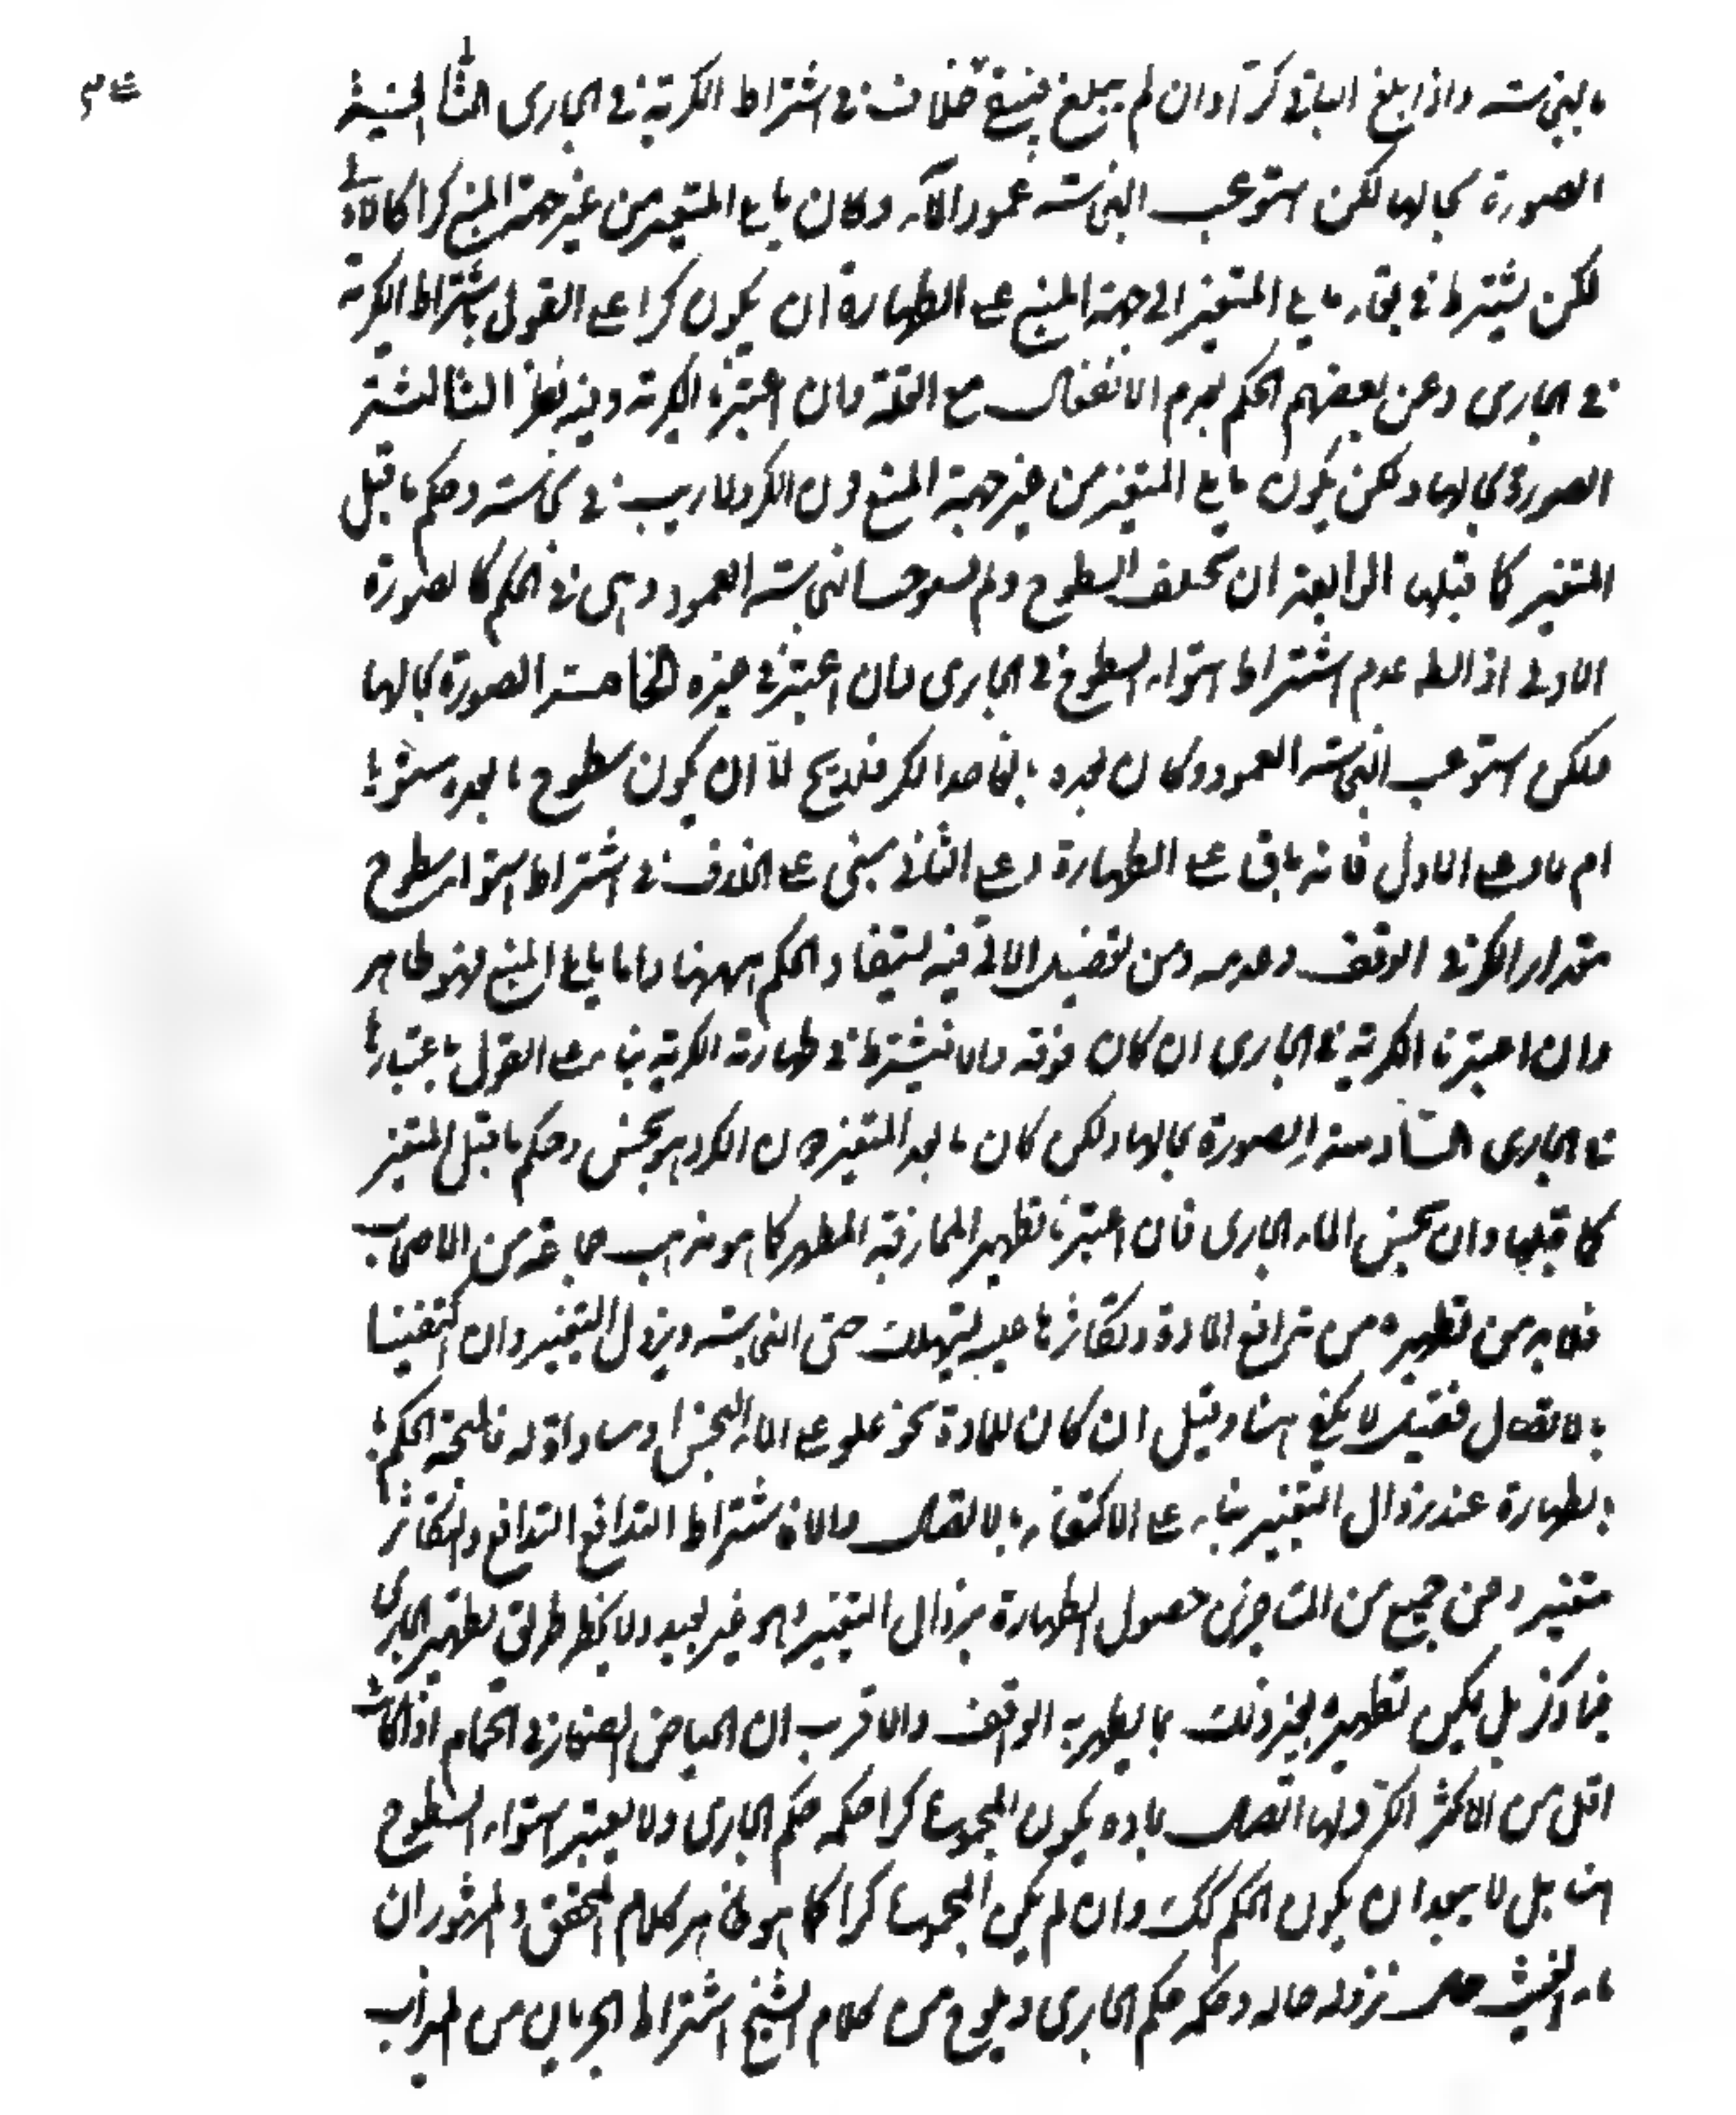 بالنجاسة واذا بلغ الباقي كرا وان لم يبلغ فينسخ خلاف في اشتراط الكرية في الجاري الثانية
الصورة بحالها لكن استوعب النجاسة عمود الماء وكان ما يلي المتغير من غير جهة المنبع كرا كالاولى
لكن يشترط في بقاء ما يلي المتغير الى جهة المنبع على الطهارة ان يكون كرا على القول باشتراط الكرية
في الجاري وعن بعضهم الحكم بعدم الانفعال مع القلة وان اعتبرنا الكرية وفيه نظر الثالثة
الصورة بحالها ولكن يكون ما يلي المتغير من غير جهة المنبع دون الكر ولا ريب في نجاسته وحكم ما قبل
المتغير كما قبلها الرابعة ان تختلف السطوح ولم يستوعب النجاسة العمود وهي في الحكم كالصورة
الاولى اذ الظ عدم اشتراط استواء السطوح في الجاري وان اعتبر في غيره الخامسة الصورة بحالها
ولكن استوعب النجاسة العمود وكان بعده بالغا حد الكر فلا يخ اما ان يكون سطوح ما بعده مستويا
ام لا وعلى الاول فانه باق على الطهارة وعلى الثاني يبنى على الخلاف في اشتراط استواء سطوح
مقدار الكر في الواقف وعدمه ومن تفصيل الاتي فيه يستفاد الحكم ههنا واما ما يلي المنبع فهو طاهر
وان اعتبرنا الكرية في الجاري ان كان فوقه والا فيشترط في طهارته الكرية بناء على القول باعتبارها
في الجاري السادسة الصورة بحالها ولكن كان ما بعد المتغير دون الكر وهو نجس وحكم ما قبل المتغير
كما قبلها وان نجس الماء الجاري فان اعتبرنا تطهير الممازجة المطهر كما هو مذهب جماعة من الاصحاب
فلا بد من تطهيره من تدافع المادة وتكاثرها عليه ليستهلك حتى النجاسة ويزول التغير وان اكتفينا
بالاتصال فقيل لا يكفي هنا وقيل ان كان للمادة نحو علو على الماء النجس او مساواة له فالمتجه الحكم
بالطهارة عند زوال التغير بناء على الاكتفاء بالاتصال والا فاشتراط التدافع التدافع والتكاثر
متغير وعن جمع من المتاخرين حصول الطهارة بزوال التغير وهو غير بعيد ولا ينحصر طريق تطهير الجاري
فيما ذكر بل يمكن تطهيره بغير ذلك بما يطهر به الواقف والاقرب ان الحياض الصغار في الحمام اذا كانت
اقل من الاكثر الكر ولها اتصال بمادة يكون المجموع كرا حكمه حكم الجاري ولا يعتبر استواء السطوح
هنا بل لا يبعد ان يكون الحكم كك وان لم يكن المجموع كرا كما هو ظاهر كلام المحقق والمشهور ان
ماء الغيث حال نزوله حاله وحكمه حكم الجاري ويلوح من كلام الشيخ اشتراط الجريان من الميزاب